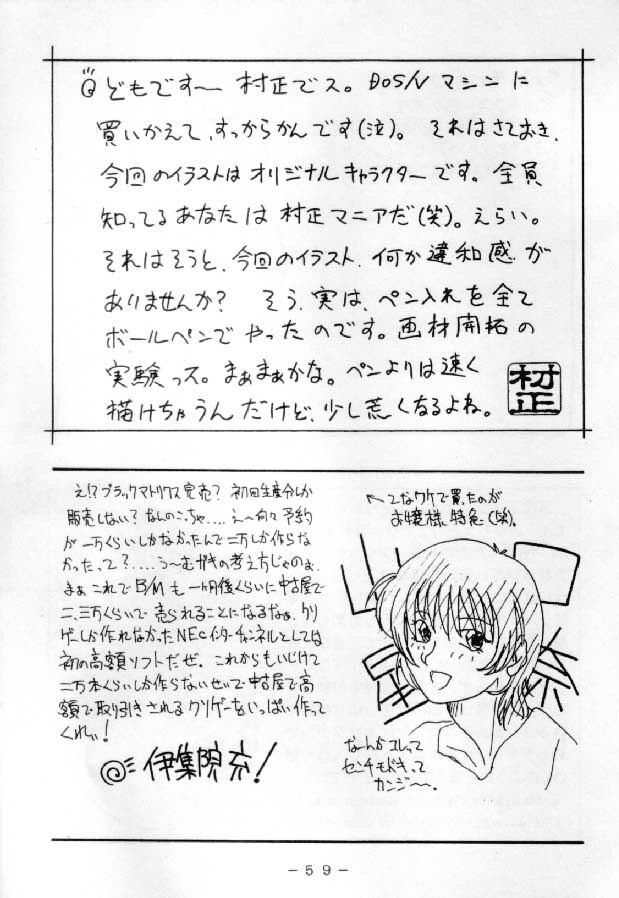 どもです〜 村正でス。DOS/V マシンに
買いかえて、すっからかんです(泣)。それはさておき、
今回のイラストは オリジナル キャラクターです。全員
知ってる あなたは 村正マニアだ(笑)。えらい。
それはそうと、今回のイラスト、何か違和感が
ありませんか? そう、実は、ペン入れを全て
ボールペンで やったのです。画材開拓の
実験っス。まぁまぁかな。ペンよりは速く
描けちゃうんだけど、少し荒くなるよね。
村正
え!?ブラックマトリクス完売? 初回生産分しか
販売しない? なんのこっちゃ....え〜何々予約
が一万くらいしかなかったんで二万しか作らな
かったって?....う〜む
の考え方じゃのぉ。
まぁこれでB/Mも一ヶ月後くらいに中古屋で
二、三万くらいで売られることになるなぁ、クソ
ゲーしか作れなかったNECインターチャンネルとしては
初の高額ソフトだぜ。これからもいじけて
二万本くらいしか作らないせいで中古屋で高
額で取引きされるクソゲーをいっぱい作って
くれぃ!
伊集院 充!
←てなワケで買ったのが
お嬢様特急(笑)。
なーんかコレって
センチモドキって
カンジ〜〜。
－59－